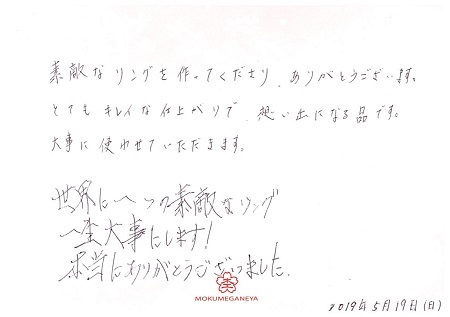 素敵なリングを作ってくださり、ありがとうございます。
とてもキレイな仕上がりで、想い出になる品です。
大事に使わせていただきます。
世界に一つの素敵なリング
一生大事にします!
本当にありがとうございました.
MOKUMEGANEYA
2019年5月19日(日)